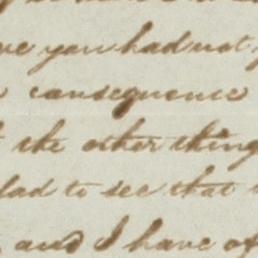 you had not
consequence
the other thing
to see that
and I have